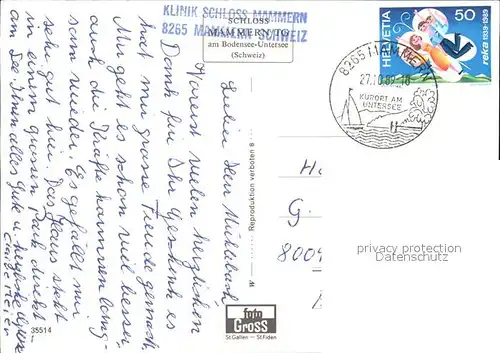 KLINIK SCHLOSS MAMMERN
8265 MAMMERN SCHWEIZ
SCHLOSS
MAMMERN TG
am Bodensee-Untersee
(Schweiz)
HELVETIA
50
reka 1939-1989
8265 MAMMERN
27.10.89
KURORT AM
UNTERSEE
Lieber Herr
Vorerst vielen herzlichen
Dank für Ihr Geschenk es
hat mir grosse Freude gemacht.
Mir geht es schon viel besser,
auch die Kräfte kommen lang-
sam wieder. Es gefällt mir
sehr gut hier. Das Haus steht
in einem grossen Park direkt
am See. Ihnen alles Gute u. herzliche Grüsse
Reproduktion verboten
G.
privacy protection
Datenschutz
35514
foto
GROSS
St.Gallen — St.Fiden